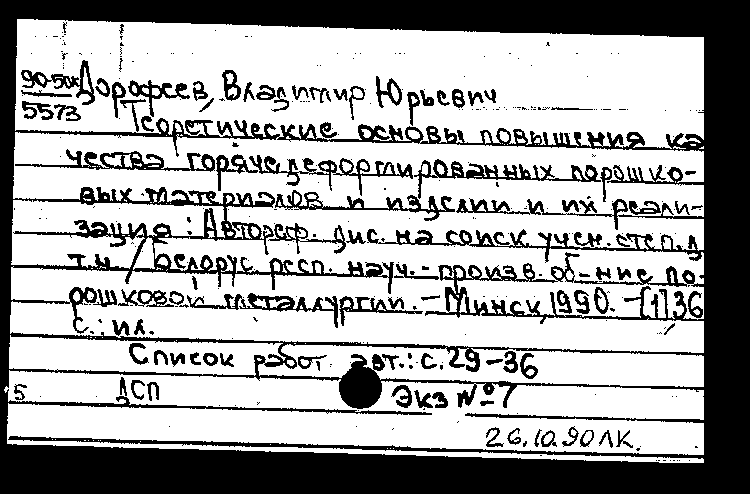 90-50к Дорофеев, Владимир Юрьевич
5573 Теоретические основы повышения ка
чества горячедеформированных порошко-
вых материалов и изделий и их реали-
зация : Автореф. дис. на соиск. учен. степ. д.
т.н. / Белорус. респ. науч.-произв. об-ние по-
рошковой металлургии. - Минск, 1990. - [1] 36
с. : ил.
Список работ авт.: с. 29-36
5 ДСП Экз № 7
26.10.90 ЛК.